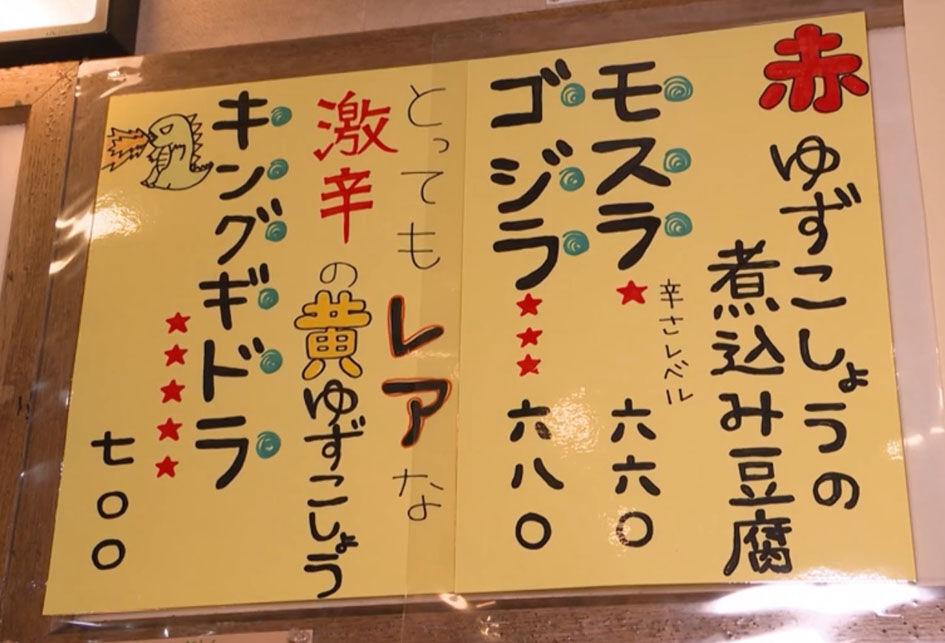 赤ゆずこしょうの
煮込み豆腐
辛さレベル
モスラ★ 六六〇
ゴジラ★★★ 六八〇
とってもレアな
激辛の黄ゆずこしょう
キングギドラ
★★★★★
七〇〇